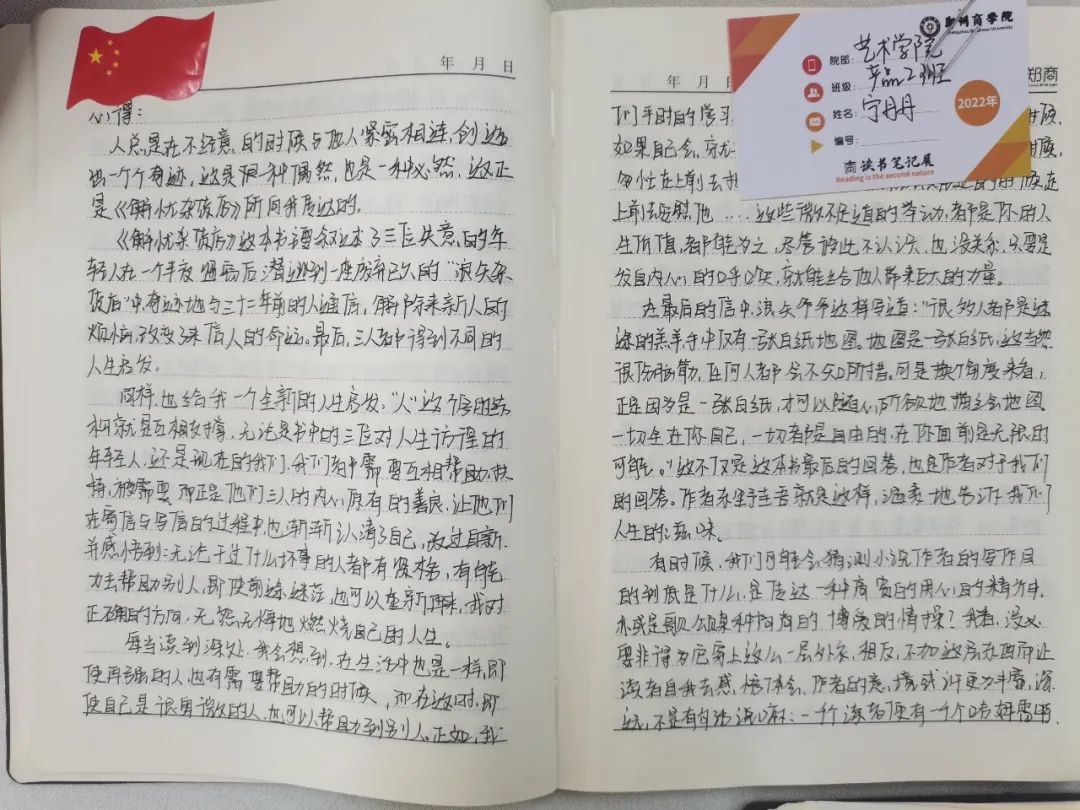 年 月 日
心得:
人总是在不经意的时候与他人紧密相连,创造
出一个个奇迹,这是一种偶然,也是一种必然,这正
是《解忧杂货店》所向我表达的。
《解忧杂货店》这本书主要叙述了三位失意的年
轻人在一个半夜 后潜逃到一座废弃已久的“浪矢杂
货店”中奇迹地与三十二年前的人通信,解除来信人的
烦恼,改变了来信人的命运。最后,三人都得到不同的
人生启发。
同样,也给我一个全新的人生启发,“人”这个字的结
构就是互相支撑,无论是书中的三位对人生 的
年轻人,还是现在的我们,我们都需要互相帮助,扶
持,被需要,而正是他们三人的内心原有的善良,让他们
在寄信与写信的过程中也渐渐认清了自己,改过自新,
并感悟到:无论干过什么坏事的人都有 ,有能
力去帮助别人,即使前途迷茫,也可以重新再来,找对
正确的方向,无怨无悔地燃烧自己的人生。
每当读到深处,我会想到,在生活中也是一样,即
使再强的人也有需要帮助的时候,而在这时,即
使自己是很卑微的人,也可以帮助到别人。正如,我
年 月
郑商
们平时的学习
如果自己会,
急忙在上前去
上前去安慰他....这些微不足道的举动,都是你的人
生价值,都能为之,尽管彼此不认识,也没关系,只要是
发自内心的呼唤,就能给他人带来巨大的力量。
在最后的信中,浪矢爷爷这样写道:“很多人都是迷
途的羔羊手中仅有一张白纸地图。地图是一张白纸,这当然
很伤脑筋,任何人都会不知所措。可是换个角度来看,
正是因为是一张白纸,才可以随心所欲地描绘地图
一切全在你自己,一切都是自由的,在你面前是无限的
可能。”这不仅是这本书最后的回答,也是作者对于我们
的回答。作者东野圭吾就是这样,温柔地告诉我们
人生的滋味。
有时候,我们可能会猜测小说作者的写作目
的到底是什么,是传达一种高贵的用心的精神,
亦或是歌颂某种 的博爱的情操?我看,没必
要非得为它穿上这么一层外衣,相反,不加这层东西而让
读者自我去感悟体会,作者的意境或许更为丰富,深
远,不是有句话说吗:一千个读者便有一千个哈姆雷特
郑州商学院
院部: 艺术学院
班级: 产品2班
姓名: 宁丹丹
编号:
2022年
商读书笔记展
Reading is the second nature